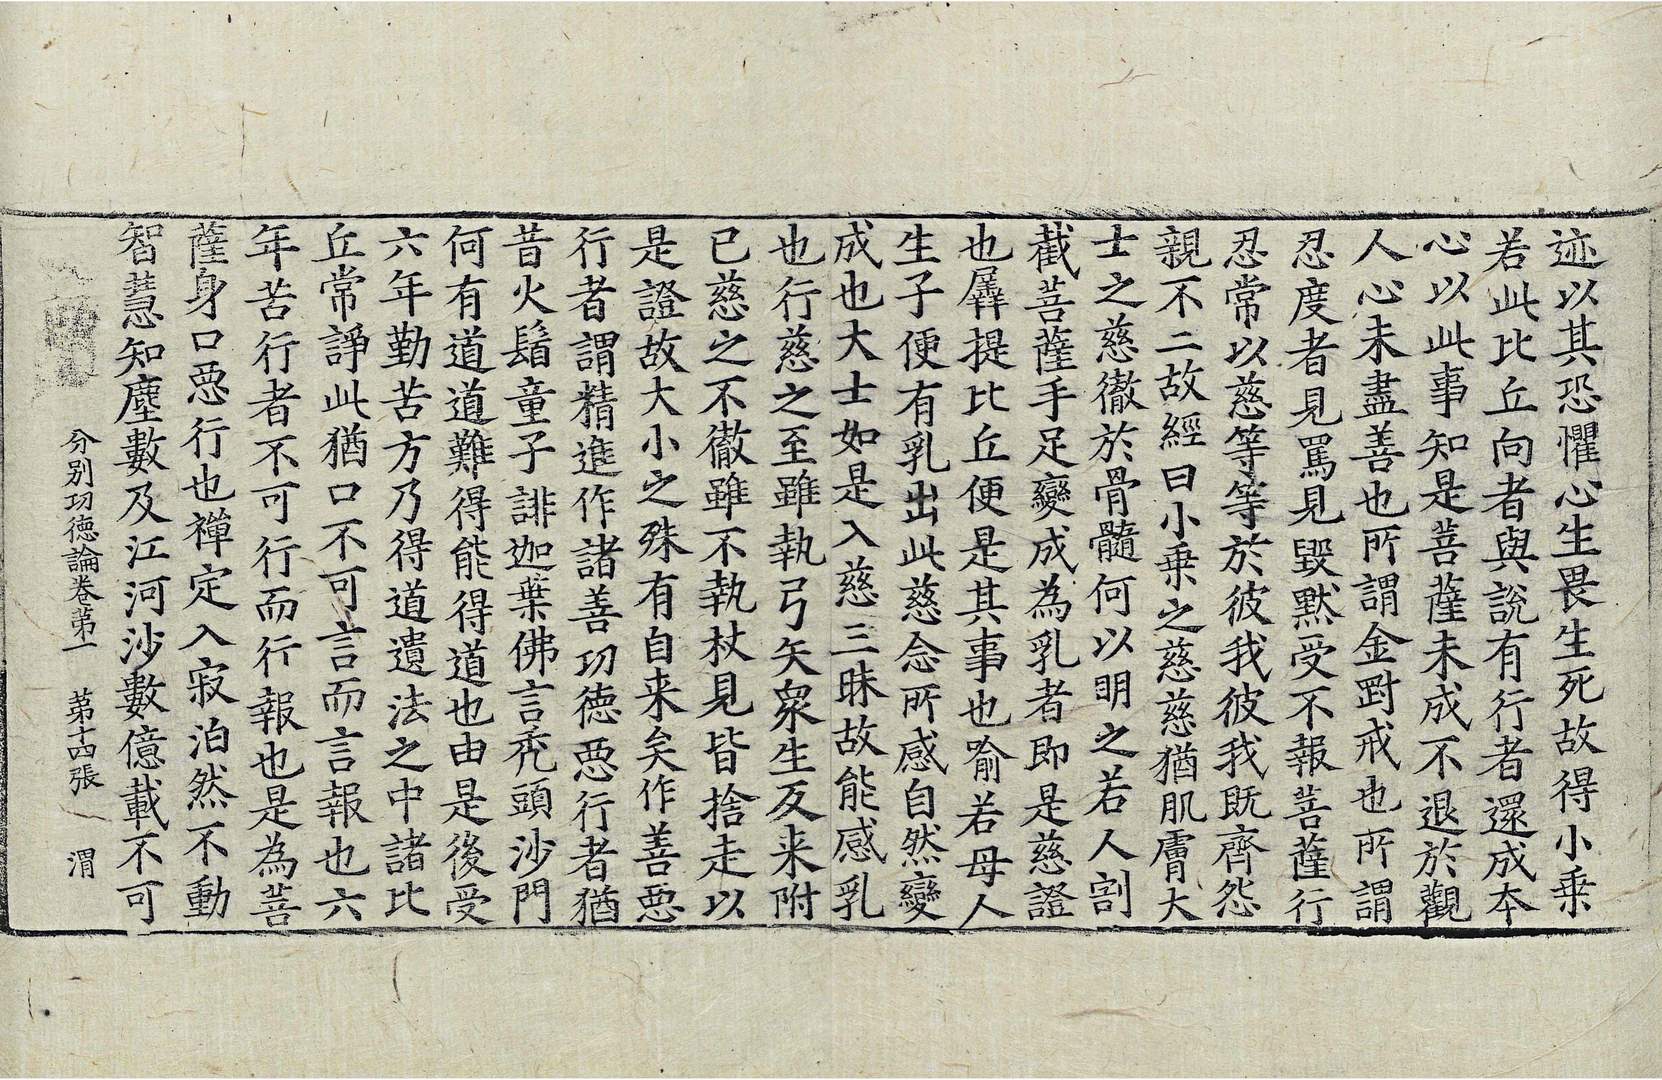 迹以其恐懼心生畏生死故得小乗
若此比丘向者與說有行者還成本
心以此事知是菩薩未成不退於觀
人心未盡善也所謂金對戒也所謂
忍度者見罵見毀默受不報菩薩行
忍常以慈等等於彼我彼我既齊怨
親不二故經曰小乗之慈慈猶肌膚大
士之慈徹於骨髓何以明之若人割
截菩薩手足變成為乳者即是慈證
也羼提比丘便是其事也喻若母人
生子便有乳出此慈念所感自然變
成也大士如是入慈三昧故能感乳
也行慈之至雖執弓矢衆生反来附
已慈之不徹雖不執杖見皆捨走以
是證故大小之殊有自来矣作善惡
行者謂精進作諸善功德惡行者猶
昔火鬘童子誹迦葉佛言禿頭沙門
何有道道難得能得道也由是後受
六年勤苦方乃得道遺法之中諸比
丘常諍此猶口不可言而言報也六
年苦行者不可行而行報也是為菩
薩身口惡行也禪定入寂泊然不動
智慧知塵數及江河沙數億載不可
分别功德論卷第一　第十四張　渭